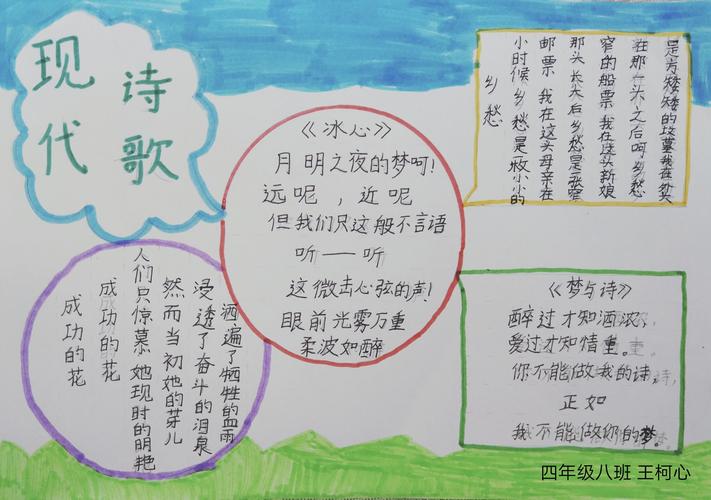 现代
诗歌
《冰心》
月明之夜的梦呵!
远呢，近呢
但我们只这般不言语
听——听
这微击心弦的声!
眼前光雾万重
柔波如醉
乡愁
小时候 乡愁是一枚小小的
邮票 我在这头母亲在
那头 长大后 乡愁是一张窄
窄的船票 我在这头新娘
在那头 之后呵 乡愁
是方矮矮的坟墓我在外头
成功的花
成功的花
人们只惊慕她现时的明艳
然而当初她的芽儿
浸透了奋斗的泪泉
洒遍了牺牲的血雨
《梦与诗》
醉过才知酒浓、
爱过才知情重。
你不能做我的诗，
正如
我不能做你的梦。
四年级八班 王柯心